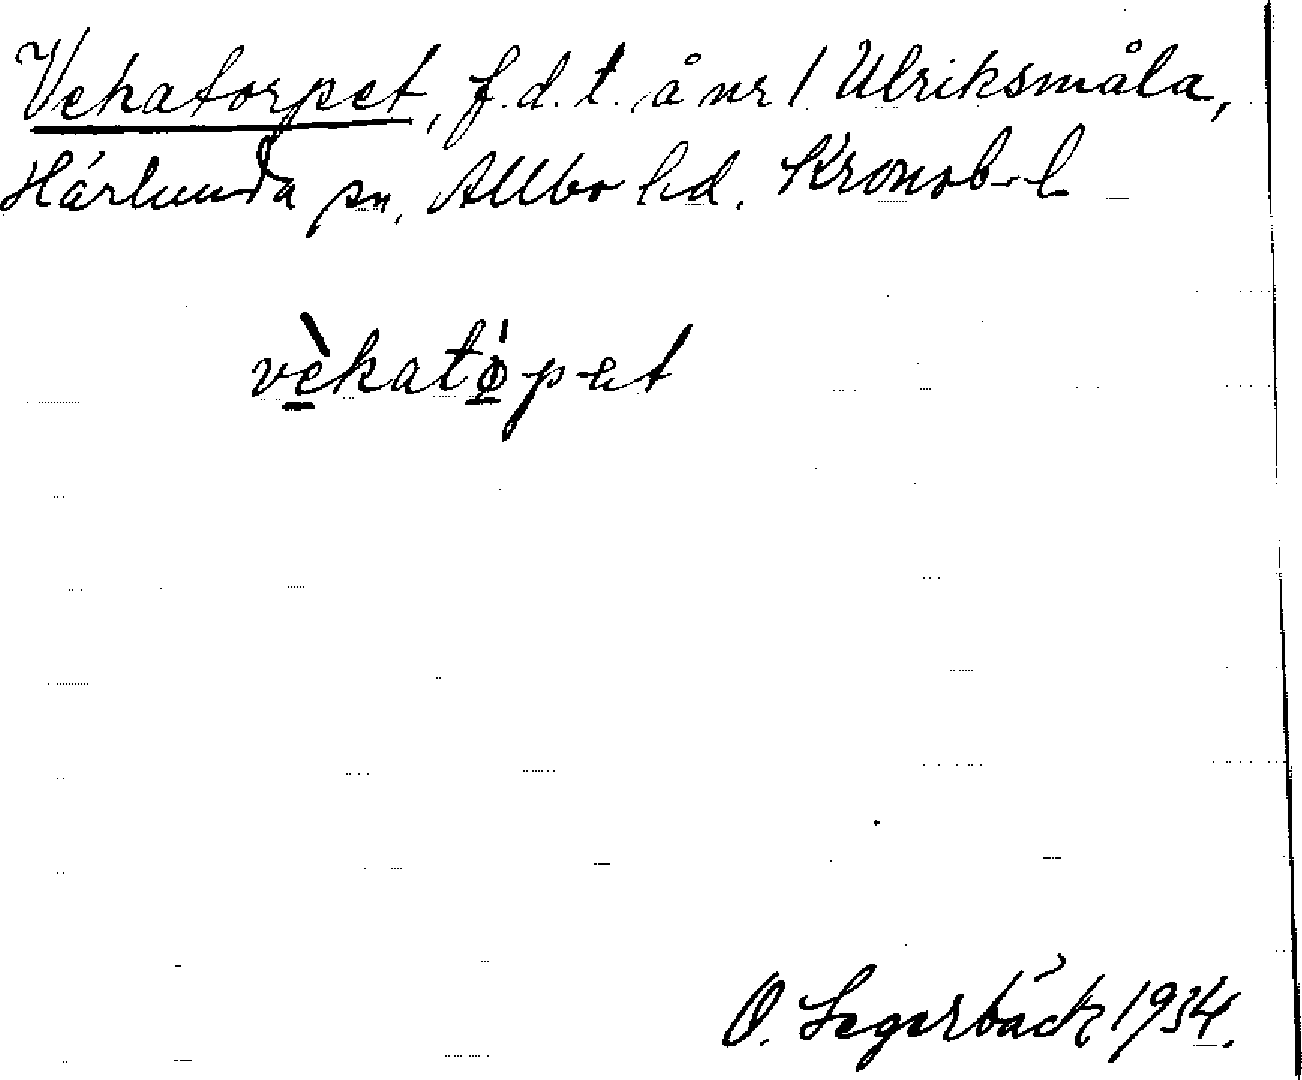 Vekatorpet, f.d.t. å nr 1 Ulriksmåla,
Härlunda sn, Allbo hd. Kronob. l
vèkatǿpet
O. Segerbäck 1934.